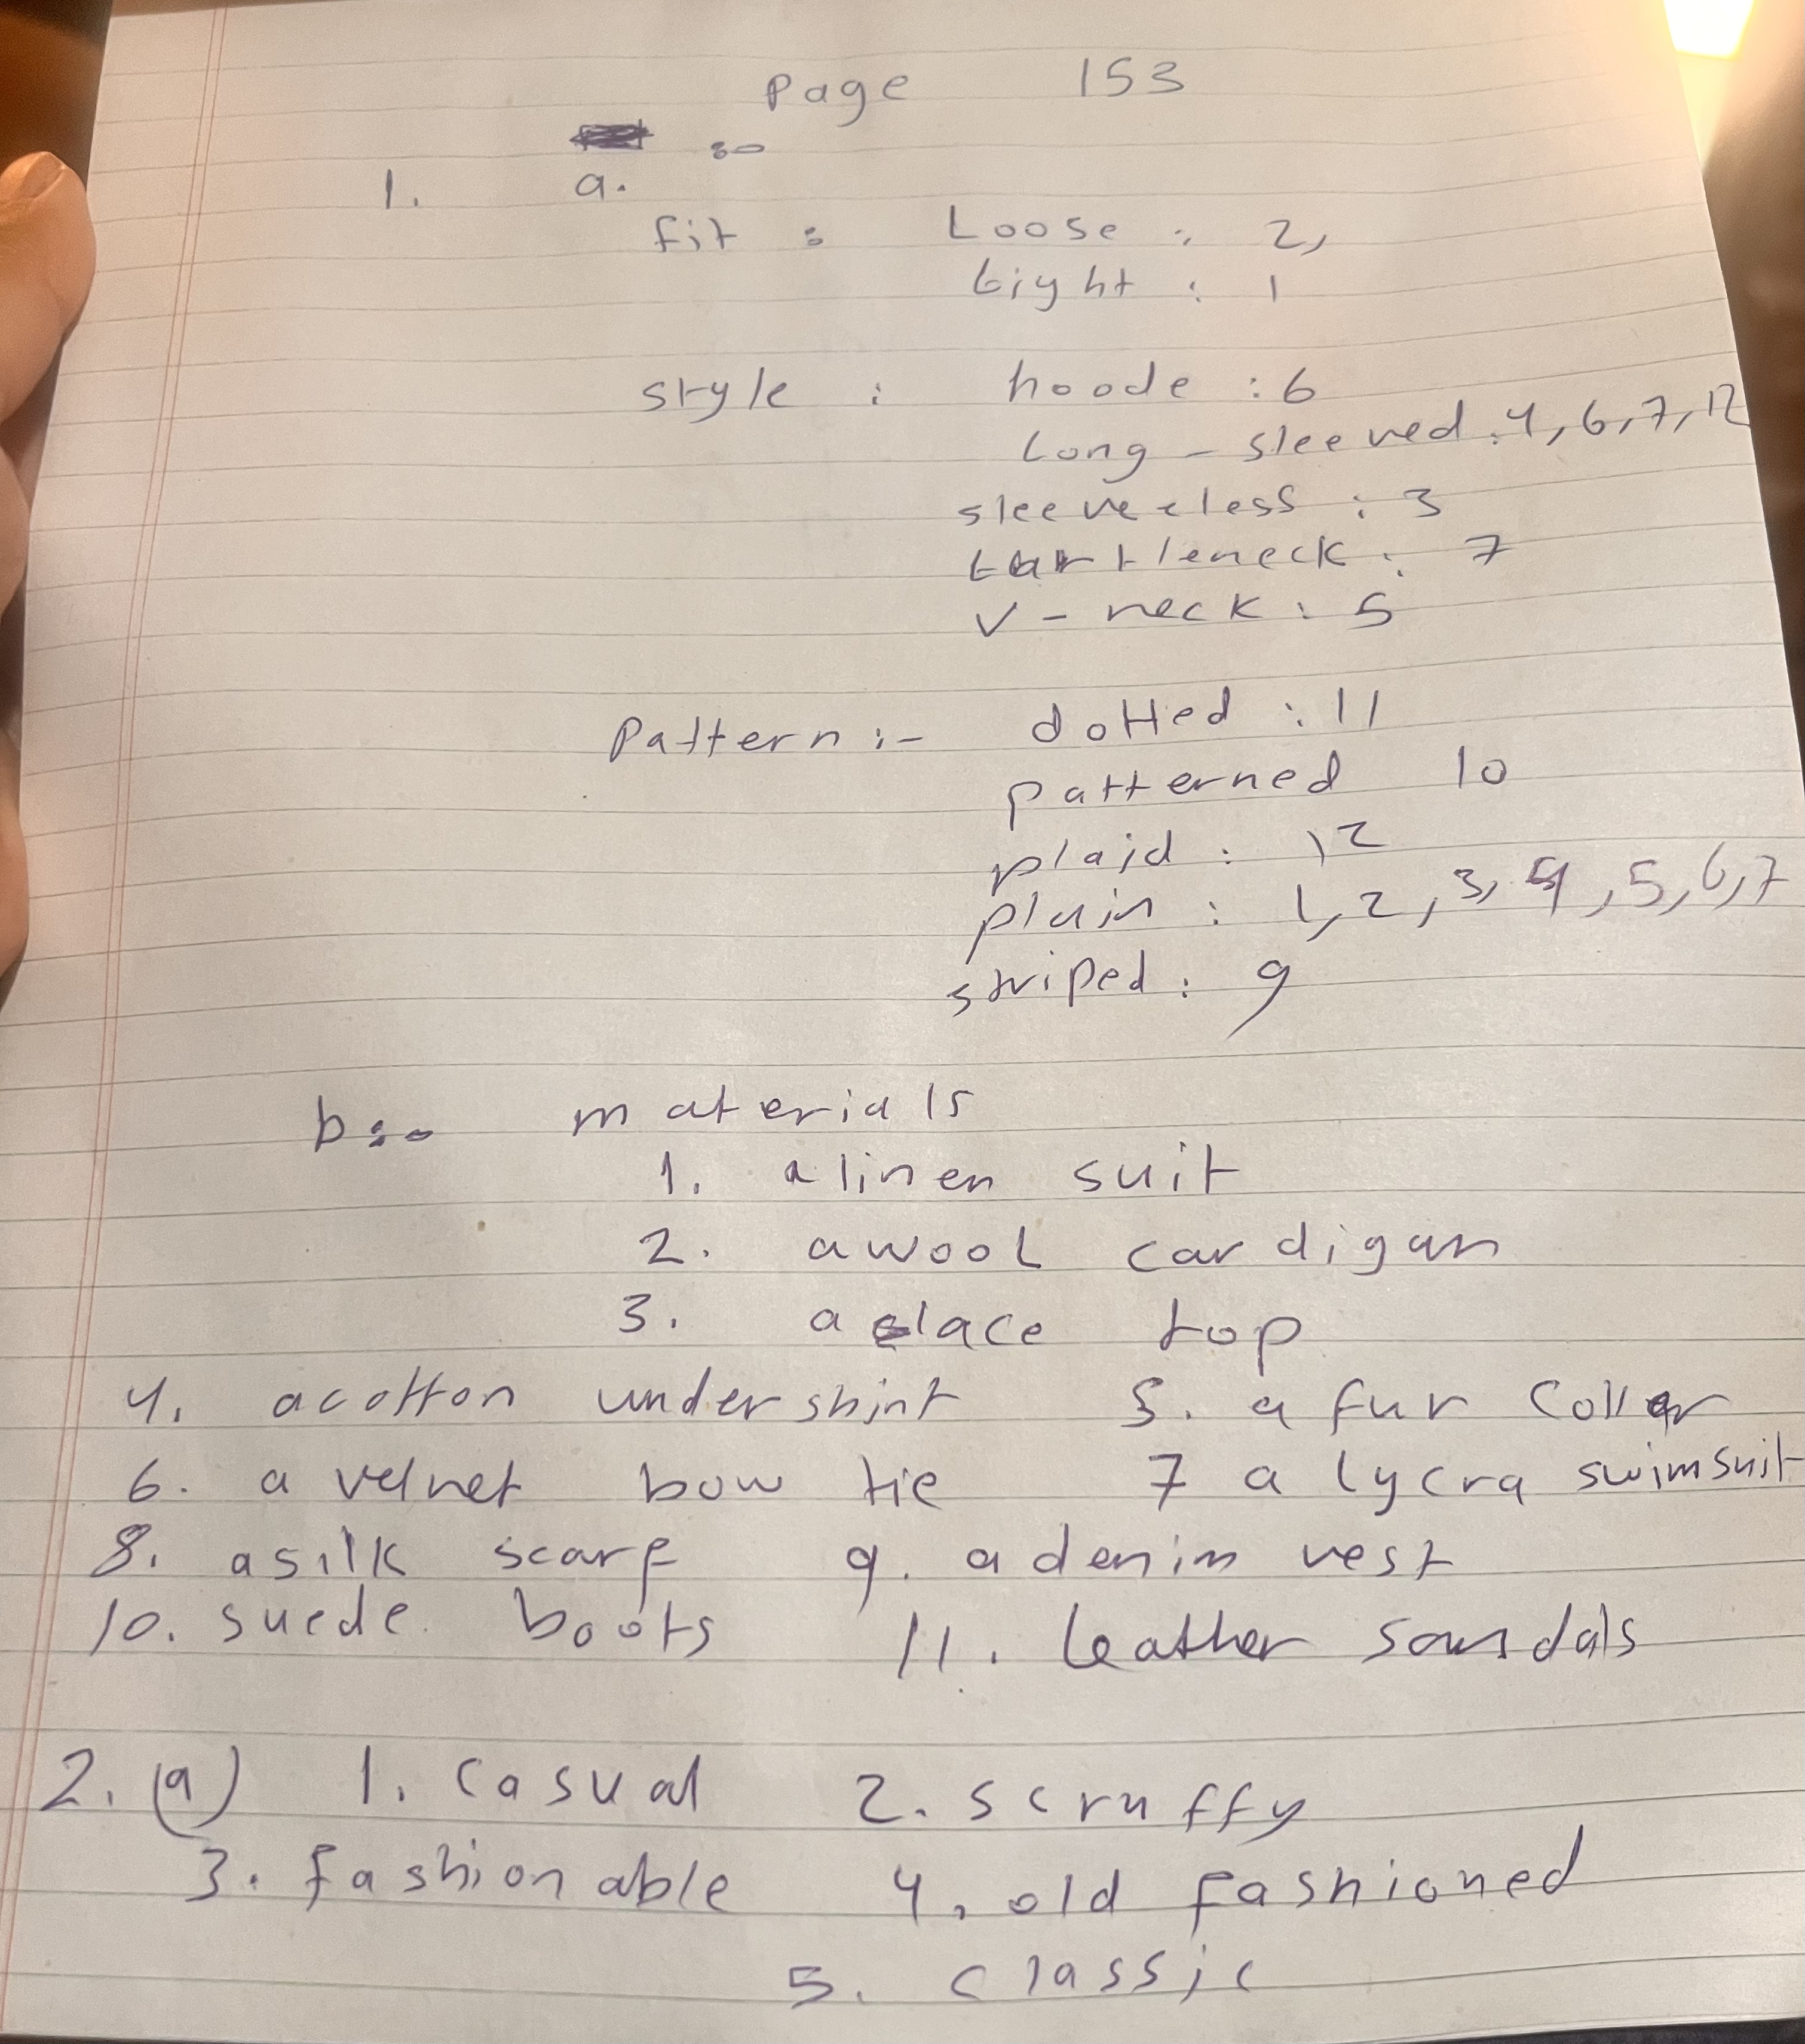 Page 153
1. a.
fit : Loose : 2,
tight : 1
style : hoode : 6
Long - sleeved : 4, 6, 7, 12
sleeveless : 3
turtleneck : 7
V - neck : 5
Pattern :- dotted : 11
patterned 10
plaid : 12
plain : 1, 2, 3, 4, 5, 6, 7
striped : 9
b :- materials
1. a linen suit
2. a wool cardigan
3. a lace top
4. a cotton undershirt 5. a fur coller
6. a velvet bow tie 7 a lycra swimsuit
8. a silk scarf 9. a denim vest
10. suede boots 11. leather sandals
2. (a) 1. casual 2. scruffy
3. fashionable 4. old fashioned
5. classic